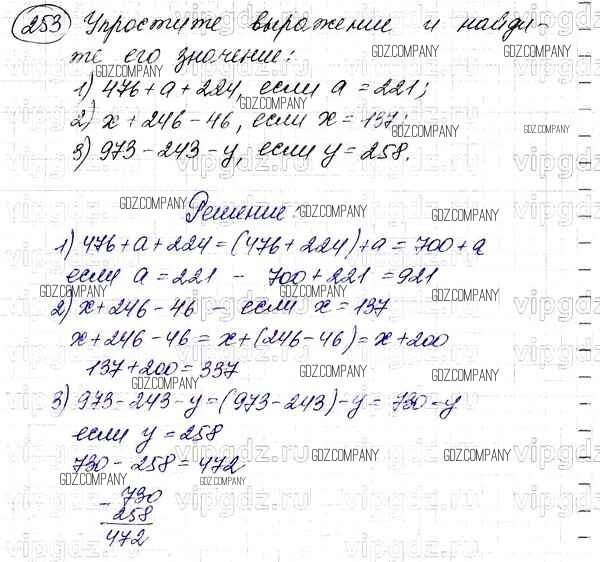 253 Упростите выражение и найди-
те его значение:
1) 476 + a + 224, если a = 221;
2) x + 246 - 46, если x = 137;
3) 973 - 243 - y, если y = 258.
Решение:
1) 476 + a + 224 = (476 + 224) + a = 700 + a
если a = 221 - 700 + 221 = 921
2) x + 246 - 46 - если x = 137
x + 246 - 46 = x + (246 - 46) = x + 200
137 + 200 = 337
3) 973 - 243 - y = (973 - 243) - y = 730 - y
если y = 258
730 - 258 = 472
- 730
258
472
GDZ.COMPANY
vipgdz.ru